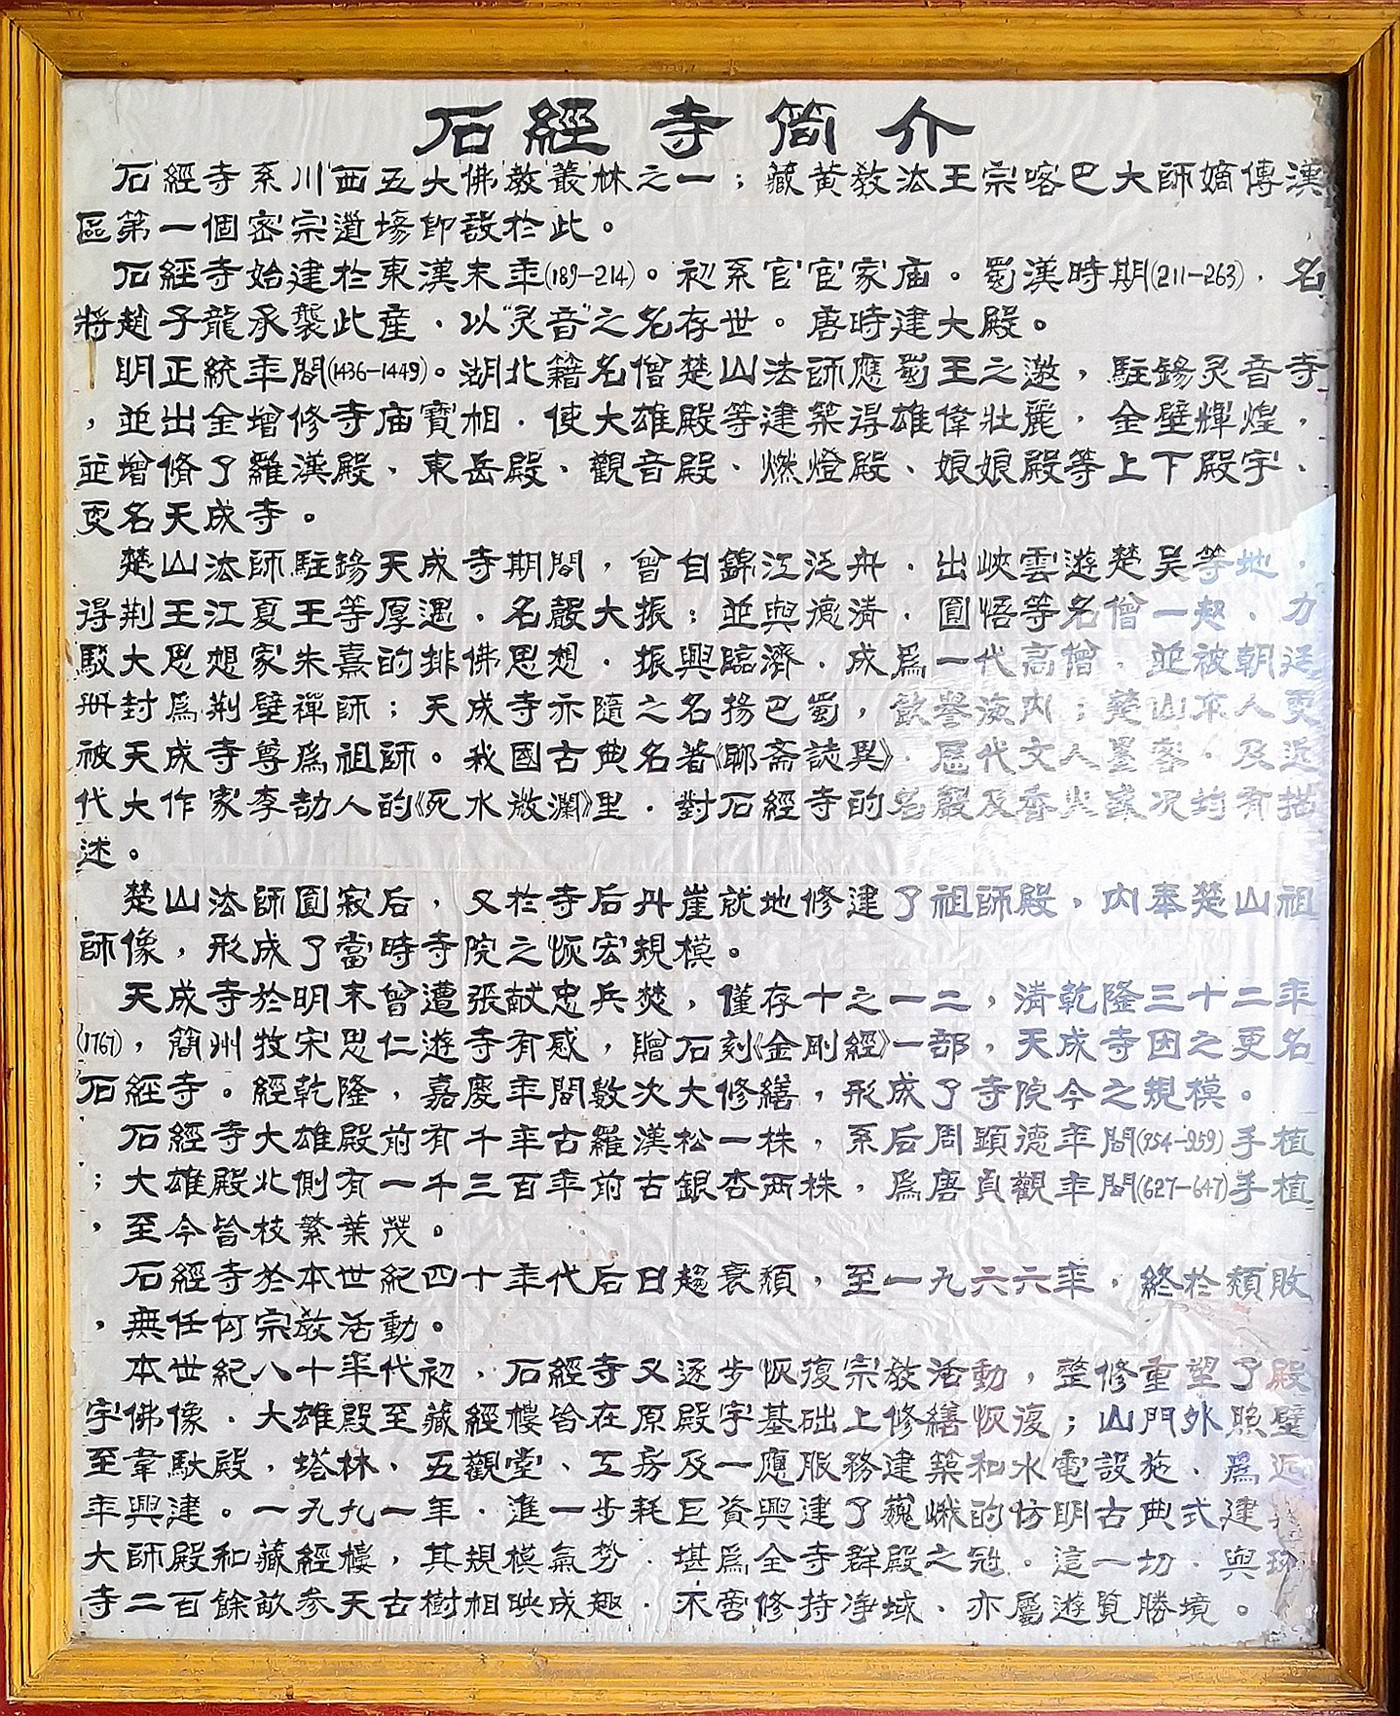 石經寺簡介
石經寺系川西五大佛教叢林之一；藏黄教法王宗喀巴大師嫡傳漢
區第一個密宗道場即設於此。
石經寺始建於東漢末年(189-214)。初系官宦家庙。蜀漢時期(211-263)，名
將趙子龍承襲此産，以“灵音”之名存世。唐時建大殿。
明正統年間(1436-1449)。湖北籍名僧楚山法師應蜀王之邀，駐錫灵音寺
，並出金增修寺庙寶相，使大雄殿等建築得雄偉壯麗，金壁輝煌，
並增脩了羅漢殿、東岳殿、觀音殿、燃燈殿、娘娘殿等上下殿宇、
更名天成寺。
楚山法師駐錫天成寺期間，曾自錦江泛舟，出峽雲遊楚吴等地，
得荆王江夏王等厚遇，名聲大振；並與德清，圓悟等名僧一起，力
駁大思想家朱熹的排佛思想，振興臨濟，成爲一代高僧，並被朝廷
册封爲荆壁禪師；天成寺亦隨之名揚巴蜀，飲譽海内；楚山本人更
被天成寺尊爲祖師。我國古典名著《聊斋誌異》，歷代文人墨客，及近
代大作家李劼人的《死水微瀾》里，對石經寺的名聲及香火盛况均有描
述。
楚山法師圓寂后，又於寺后丹崖就地修建了祖師殿，内奉楚山祖
師像，形成了當時寺院之恢宏規模。
天成寺於明末曾遭張献忠兵焚，僅存十之一二，清乾隆三十二年
(1767)，簡州牧宋思仁遊寺有感，贈石刻《金剛經》一部，天成寺因之更名
石經寺。經乾隆，嘉慶年間數次大修繕，形成了寺院今之規模。
石經寺大雄殿前有千年古羅漢松一株，系后周顯德年間(954-959)手植
；大雄殿北側有一千三百年前古銀杏两株，爲唐貞觀年間(627-647)手植
，至今皆枝繁葉茂。
石經寺於本世紀四十年代后日趨衰頽，至一九六六年，終於頽敗
，無任何宗教活動。
本世紀八十年代初，石經寺又逐步恢復宗教活動，整修重塑了殿
宇佛像，大雄殿至藏經樓皆在原殿宇基础上修繕恢復；山門外照壁
至韋馱殿，塔林、五觀堂、工房及一應服務建築和水電設施、爲近
年興建。一九九一年，進一步耗巨資興建了巍峨的仿明古典式建
大師殿和藏經樓，其規模氣势，堪爲全寺群殿之冠。這一切，與環
寺二百餘畝参天古樹相映成趣，不啻修持净域，亦屬遊覽勝境。